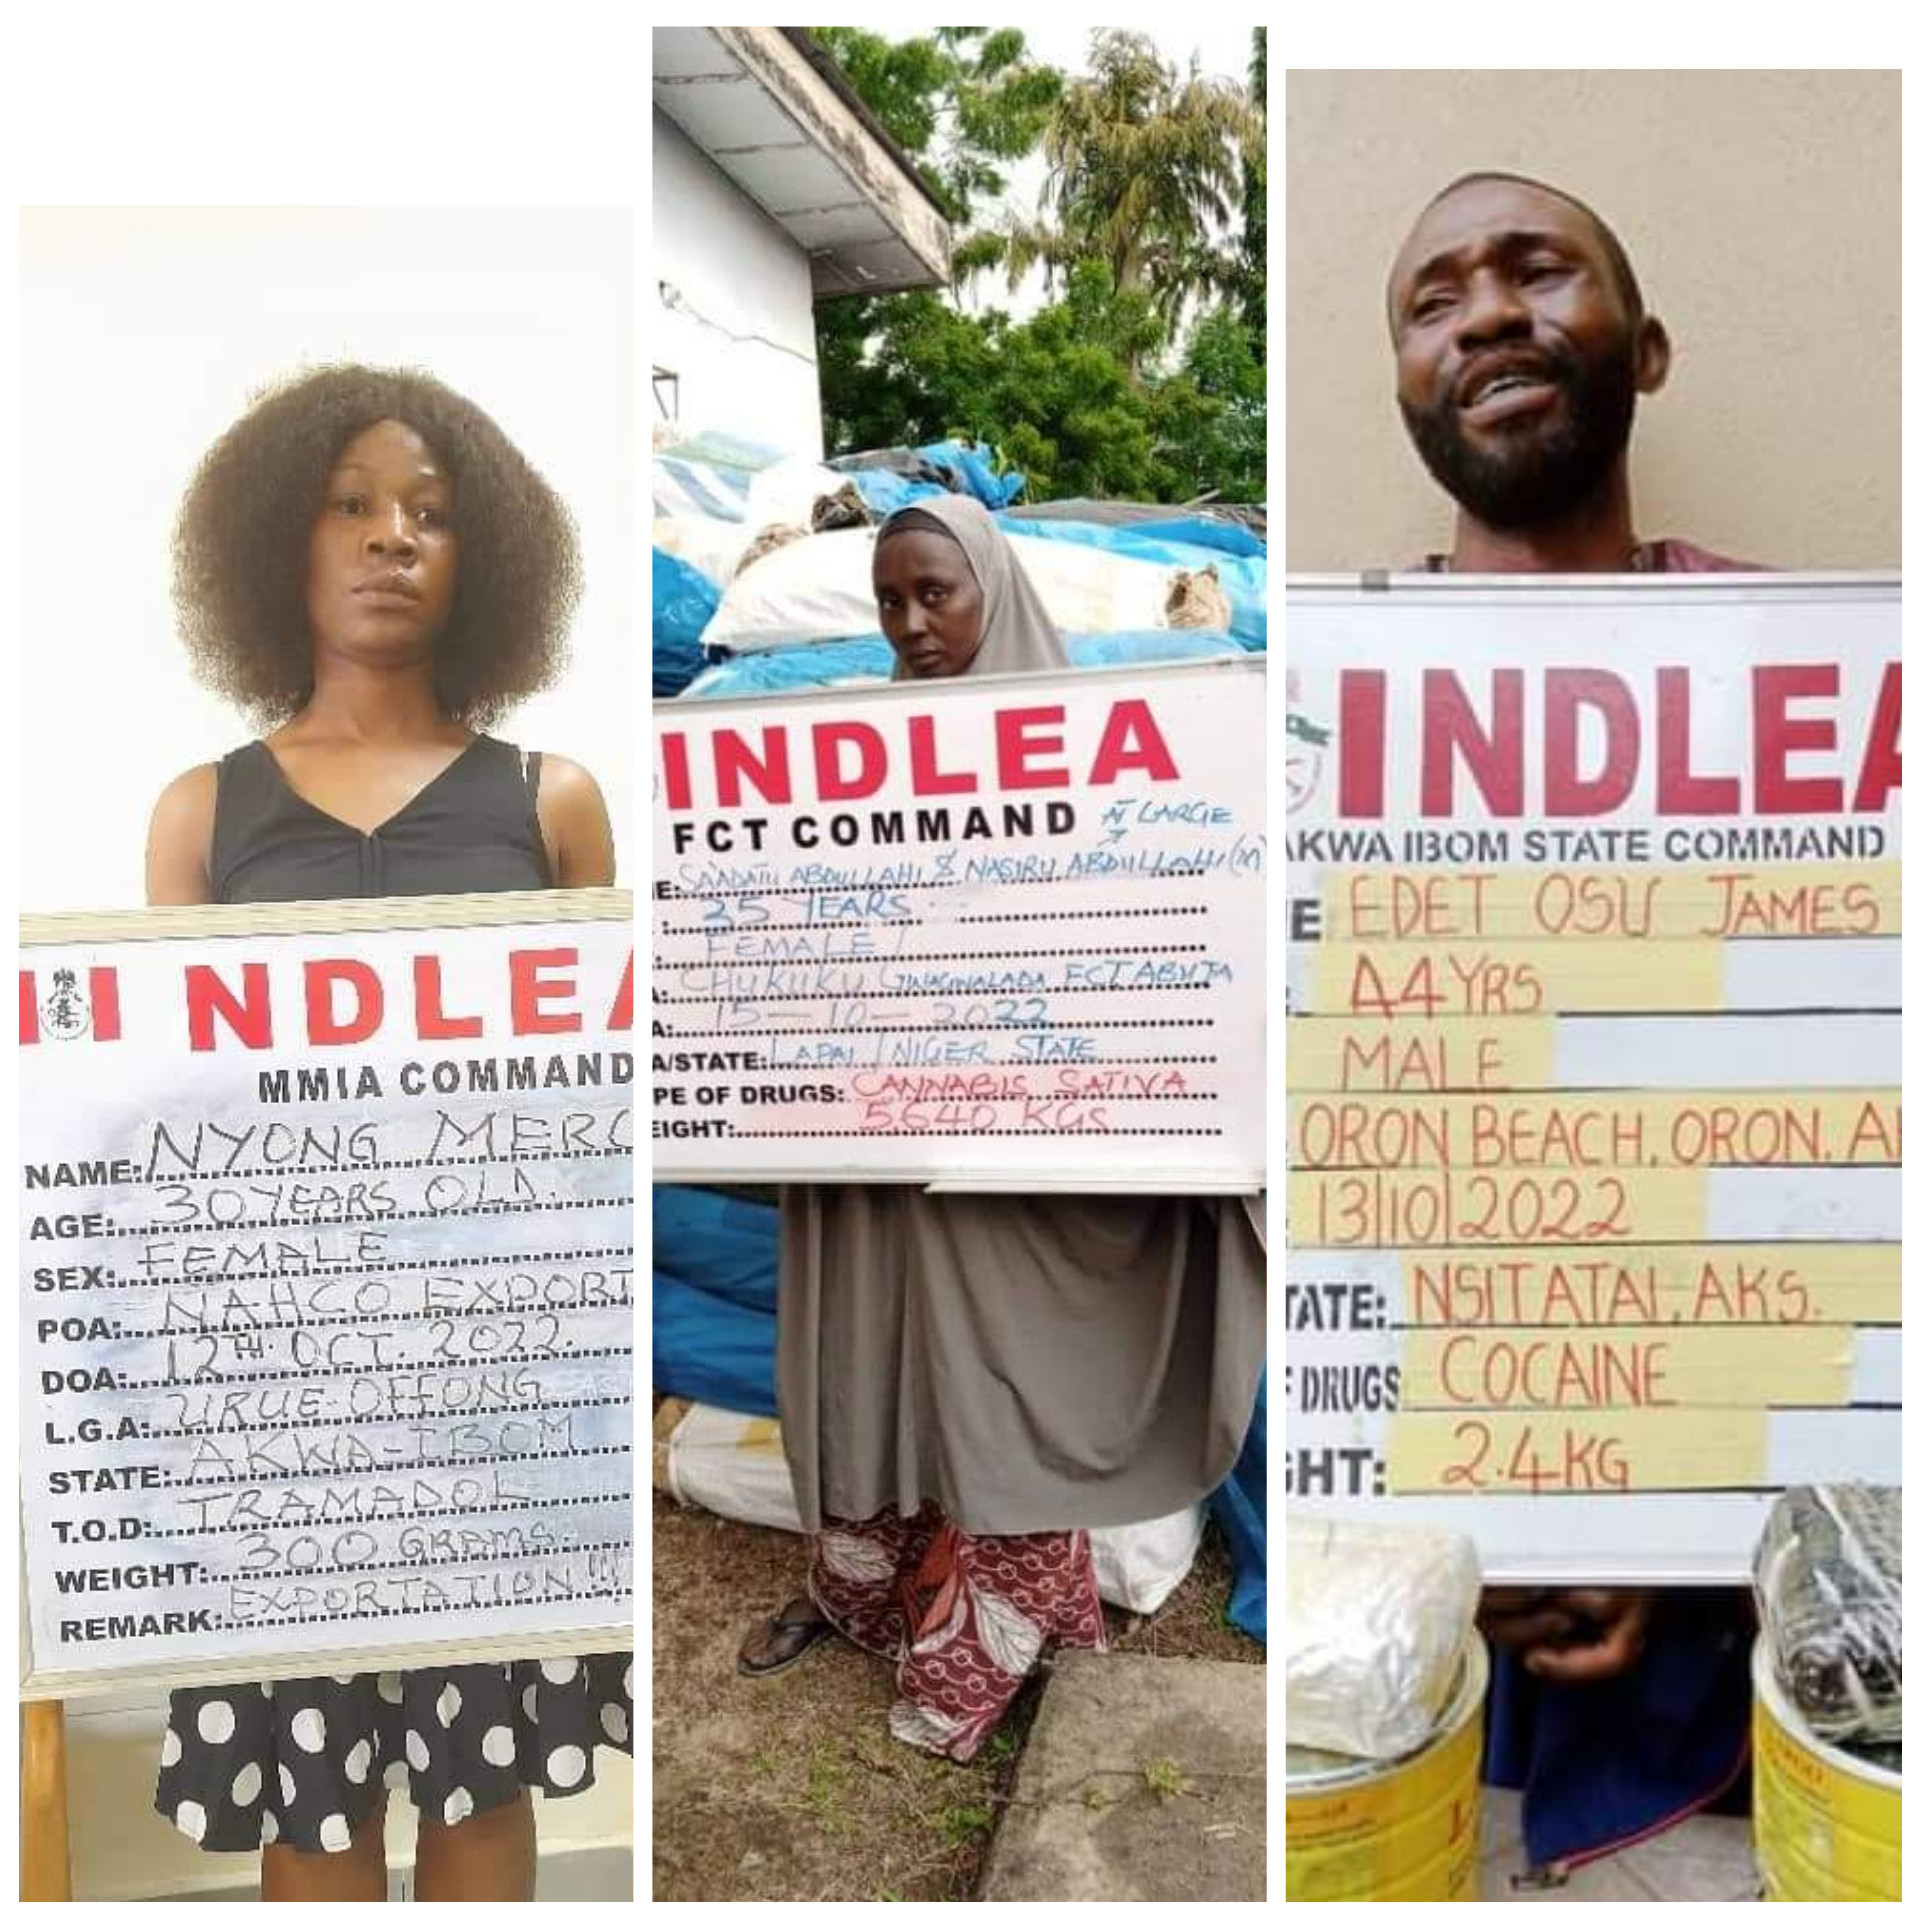 NDLEA
MMIA COMMAND
NAME: NYONG MERC
AGE: 30 YEARS OLD.
SEX: FEMALE
POA: NAHCO EXPORT
DOA: 12TH. OCT. 2022.
L.G.A: URUE-OFFONG
STATE: AKWA-IBOM
T.O.D: TRAMADOL
WEIGHT: 300 GRAMS.
REMARK: EXPORTATION!!!
NDLEA
FCT COMMAND AT LARGE
E: SA'ADATU ABDULLAHI & NASIRU ABDULLAHI (M)
: 35 YEARS
: FEMALE
A: CHUKUKU GWAGWALADA FCT ABUJA
A: 15-10-2022
A/STATE: LAPAI / NIGER STATE
PE OF DRUGS: CANNABIS SATIVA
EIGHT: 5640 KGS
NDLEA
AKWA IBOM STATE COMMAND
E EDET OSU JAMES
44YRS
MALE
ORON BEACH, ORON. A
13|10|2022
TATE: NSIT ATAI, AKS.
F DRUGS COCAINE
GHT: 2.4KG